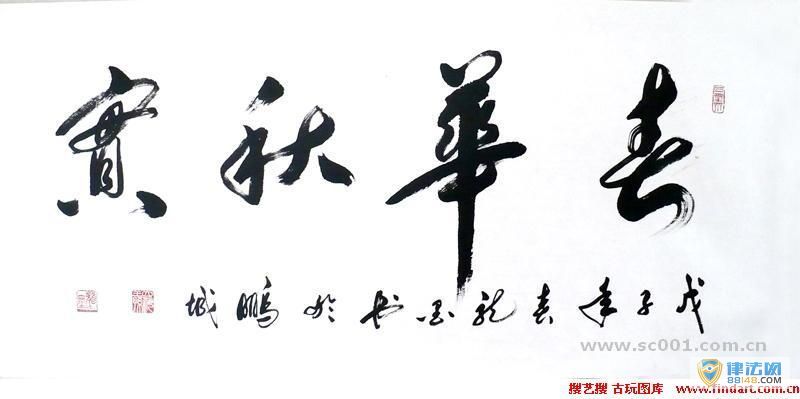 春華秋實
戊子年春龍墨書於鵬城
www.sc001.com.cn
律法网
88148.com
搜艺搜 古玩图库 http://www.findart.com.cn